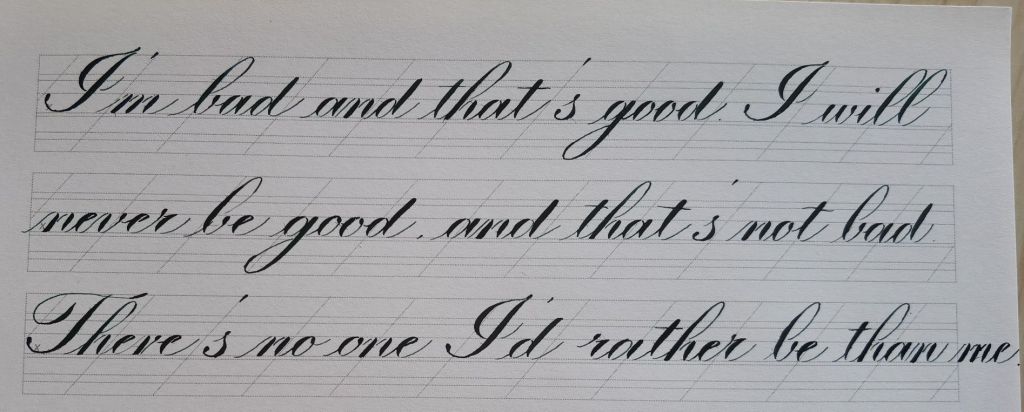 I'm bad and that's good. I will
never be good, and that's not bad.
There's no one I'd rather be than me.